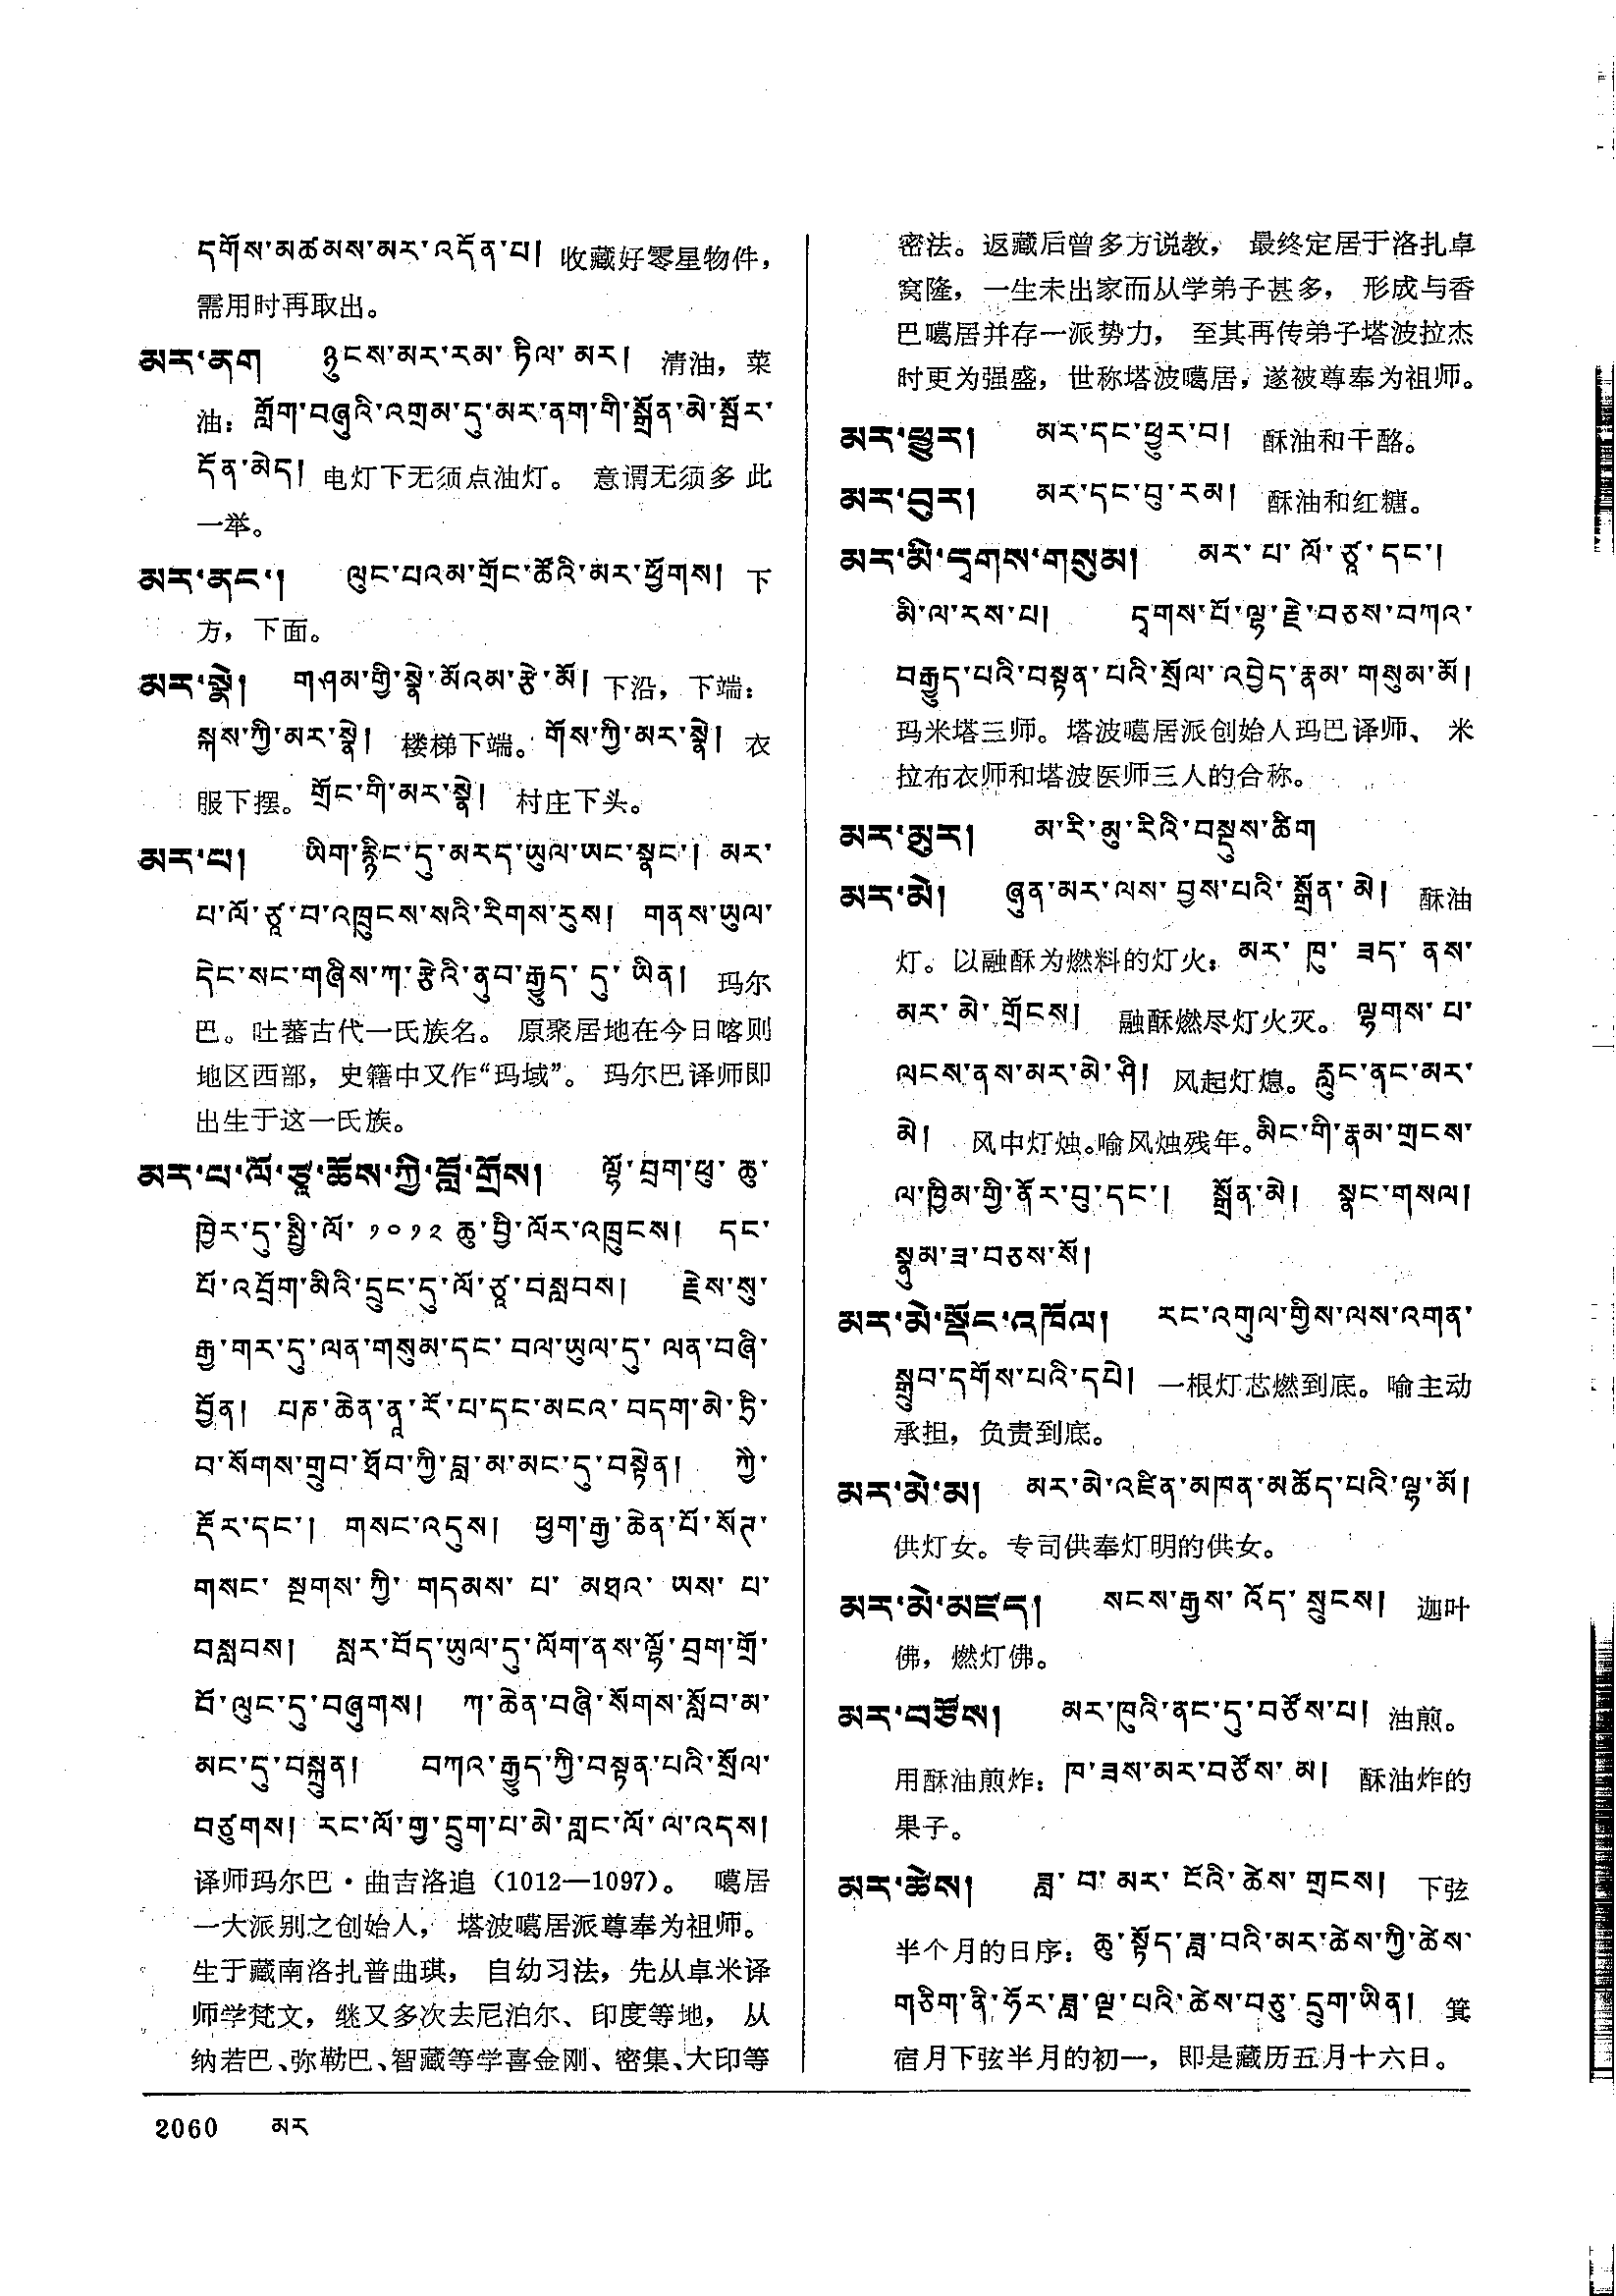 དགོས་མཚམས་མར་འདོན་པ། 收藏好零星物件，
需用时再取出。
མར་ནག ཉུངས་མར་རམ་ཏིལ་མར། 清油，菜
油：གློག་བཞུའི་འགྲམ་དུ་མར་ནག་གི་སྒྲོན་མེ་སྦོར་
དོན་མེད། 电灯下无须点油灯。 意谓无须多此
一举。
མར་ནང་། ལུང་པའམ་གྲོང་ཚོའི་མར་ཕྱོགས། 下
方，下面。
མར་སྣེ། གཤམ་གྱི་སྣེ་མོའམ་རྩེ་མོ། 下沿，下端：
སྐས་ཀྱི་མར་སྣེ། 楼梯下端。གོས་ཀྱི་མར་སྣེ། 衣
服下摆。གྲོང་གི་མར་སྣེ། 村庄下头。
མར་པ། ཡིག་རྙིང་དུ་མརད་ཡུལ་ཡང་སྣང་། མར་
པ་ལོ་ཙཱ་བ་འཁྲུངས་སའི་རིགས་རུས། གནས་ཡུལ་
དེང་སང་གཞིས་ཀ་རྩེའི་ནུབ་རྒྱུད་དུ་ཡིན། 玛尔
巴。吐蕃古代一氏族名。 原聚居地在今日喀则
地区西部，史籍中又作“玛域”。 玛尔巴译师即
出生于这一氏族。
མར་པ་ལོ་ཙཱ་ཆོས་ཀྱི་བློ་གྲོས། ལྷོ་བྲག་ཕུ་ཆུ་
ཁྱེར་དུ་སྤྱི་ལོ་ ༡༠༡༢ ཆུ་བྱི་ལོར་འཁྲུངས། དང་
པོ་འབྲོག་མིའི་དྲུང་དུ་ལོ་ཙཱ་བསླབས། རྗེས་སུ་
རྒྱ་གར་དུ་ལན་གསུམ་དང་བལ་ཡུལ་དུ་ལན་བཞི་
བྱོན། པཎ་ཆེན་ནཱ་རོ་པ་དང་མངའ་བདག་མེ་ཏྲི་
བ་སོགས་གྲུབ་ཐོབ་ཀྱི་བླ་མ་མང་དུ་བསྟེན། ཀྱེ་
རྡོར་དང་། གསང་འདུས། ཕྱག་རྒྱ་ཆེན་པོ་སོཊ་
གསང་སྔགས་ཀྱི་གདམས་པ་མཐའ་ཡས་པ་
བསླབས། སླར་བོད་ཡུལ་དུ་ལོག་ནས་ལྷོ་བྲག་གྲོ་
བོ་ལུང་དུ་བཞུགས། ཀ་ཆེན་བཞི་སོགས་སློབ་མ་
མང་དུ་བསྐྲུན། བཀའ་རྒྱུད་ཀྱི་བསྟན་པའི་སྲོལ་
བཙུགས། རང་ལོ་གྱ་དྲུག་པ་མེ་གླང་ལོ་ལ་འདས།
译师玛尔巴·曲吉洛追（1012—1097）。 噶居
一大派别之创始人， 塔波噶居派尊奉为祖师。
生于藏南洛扎普曲琪， 自幼习法，先从卓米译
师学梵文，继又多次去尼泊尔、印度等地， 从
纳若巴、弥勒巴、智藏等学喜金刚、密集、大印等
密法。返藏后曾多方说教， 最终定居于洛扎卓
窝隆，一生未出家而从学弟子甚多， 形成与香
巴噶居并存一派势力， 至其再传弟子塔波拉杰
时更为强盛，世称塔波噶居，遂被尊奉为祖师。
མར་ཕྱུར། མར་དང་ཕྱུར་བ། 酥油和干酪。
མར་བུར། མར་དང་བུ་རམ། 酥油和红糖。
མར་མི་དྭགས་གསུམ། མར་པ་ལོ་ཙཱ་དང་།
མི་ལ་རས་པ། དྭགས་པོ་ལྷ་རྗེ་བཅས་བཀའ་
བརྒྱུད་པའི་བསྟན་པའི་སྲོལ་འབྱེད་རྣམ་གསུམ་མོ།
玛米塔三师。塔波噶居派创始人玛巴译师、 米
拉布衣师和塔波医师三人的合称。
མར་མུར། མ་རི་མུ་རིའི་བསྡུས་ཚིག
མར་མེ། ཞུན་མར་ལས་བྱས་པའི་སྒྲོན་མེ། 酥油
灯。以融酥为燃料的灯火：མར་ཁུ་ཟད་ནས་
མར་མེ་གྲོངས། 融酥燃尽灯火灭。 ལྷགས་པ་
ལངས་ནས་མར་མེ་ཤི། 风起灯熄。རླུང་ནང་མར་
མེ། 风中灯烛。喻风烛残年。མིང་གི་རྣམ་གྲངས་
ལ་ཁྱིམ་གྱི་ནོར་བུ་དང་། སྒྲོན་མེ། སྣང་གསལ།
སྣུམ་ཟ་བཅས་སོ།
མར་མེ་སྡོང་འཁོལ། རང་འགུལ་གྱིས་ལས་འགན་
སྒྲུབ་དགོས་པའི་དཔེ། 一根灯芯燃到底。喻主动
承担，负责到底。
མར་མེ་མ། མར་མེ་འཛིན་མཁན་མཆོད་པའི་ལྷ་མོ།
供灯女。专司供奉灯明的供女。
མར་མེ་མཛད། སངས་རྒྱས་འོད་སྲུངས། 迦叶
佛，燃灯佛。
མར་བཙོས། མར་ཁུའི་ནང་དུ་བཙོས་པ། 油煎。
用酥油煎炸：ཁ་ཟས་མར་བཙོས་མ། 酥油炸的
果子。
མར་ཚེས། ཟླ་བ་མར་ངོའི་ཚེས་གྲངས། 下弦
半个月的日序：ཆུ་སྟོད་ཟླ་བའི་མར་ཚེས་ཀྱི་ཚེས་
གཅིག་ནི་ཧོར་ཟླ་ལྔ་པའི་ཚེས་བཅུ་དྲུག་ཡིན། 箕
宿月下弦半月的初一，即是藏历五月十六日。
2060 མར